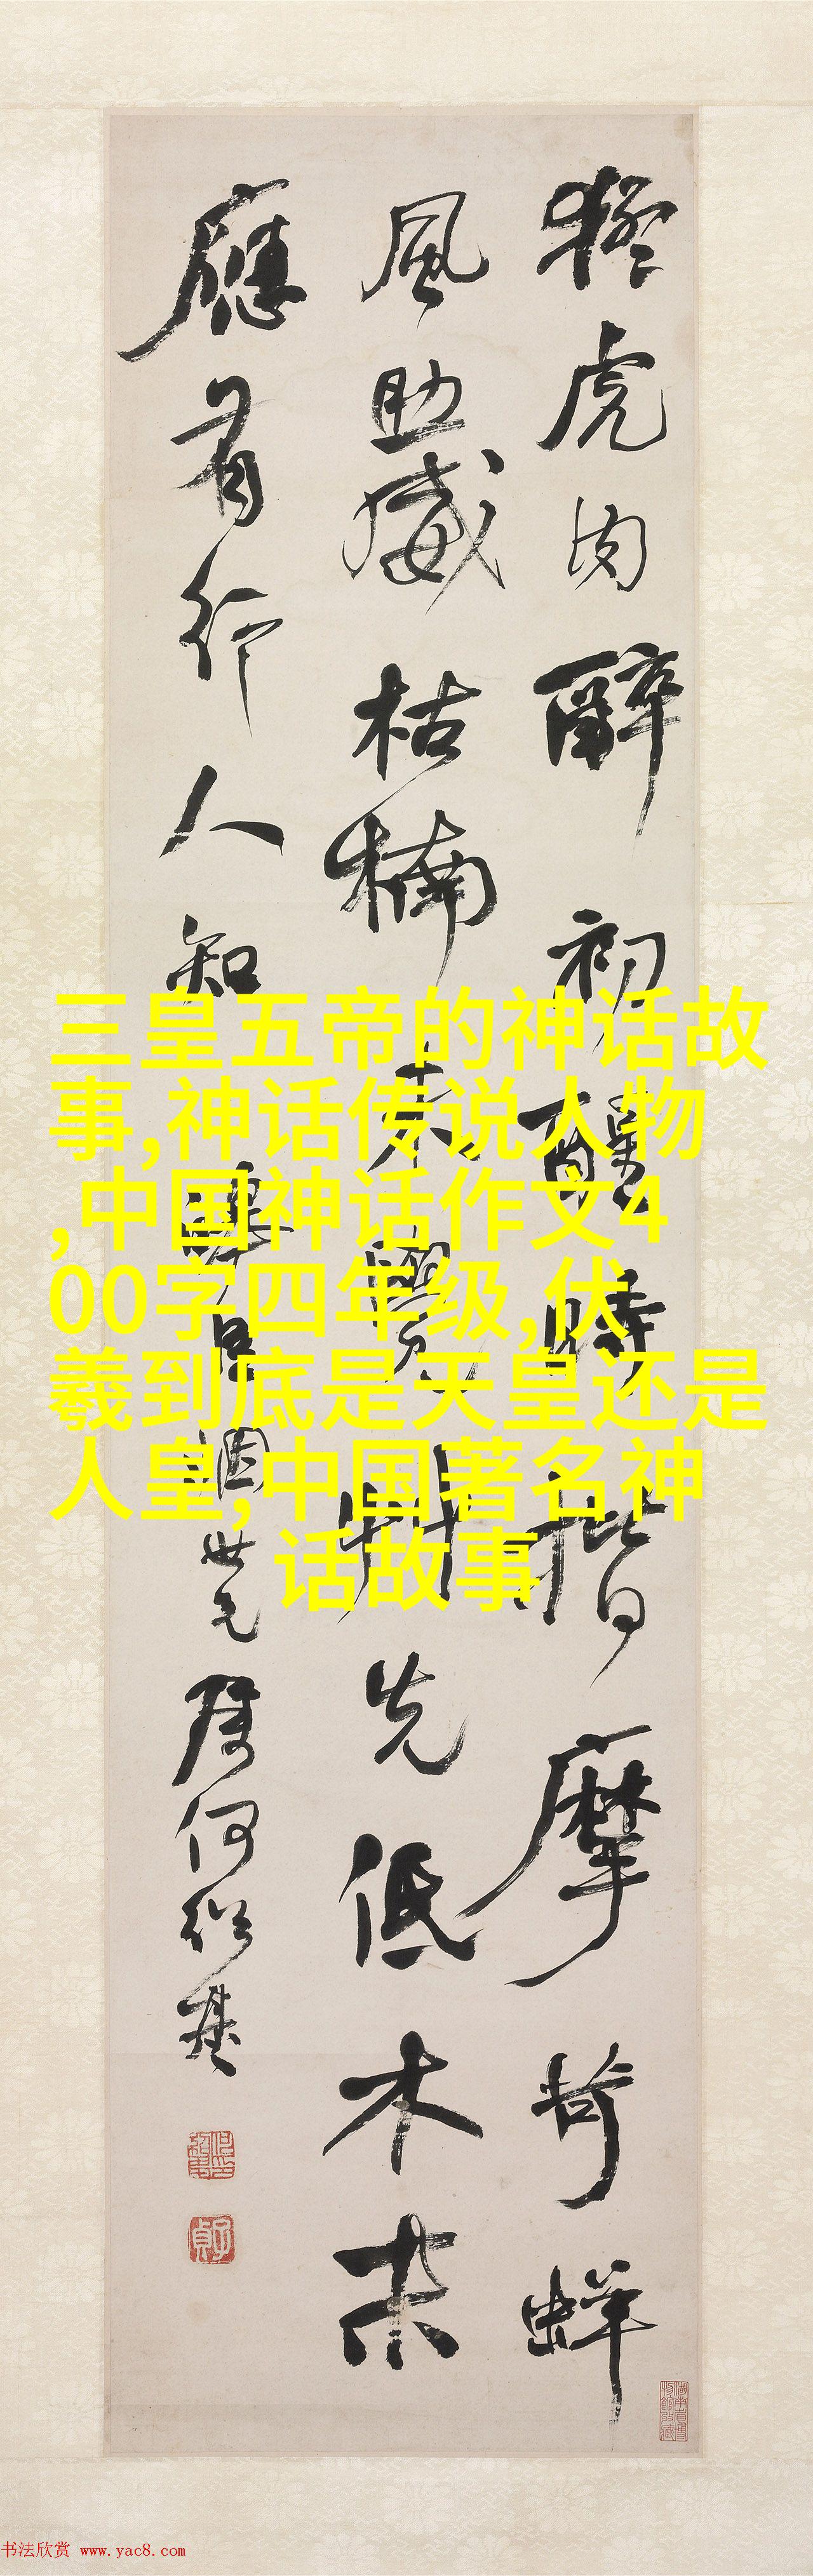 猛虎肉醉初醒時揩摩苛蛘
風助威枯楠未覺
先低木末
應有行人知
何紹基
三皇五帝的神话故
事,神话传说人物
,中国神话作文4
00字四年级,伏
羲到底是天皇还是
人皇,中国著名神
话故事
书法欣赏 www.yac8.com